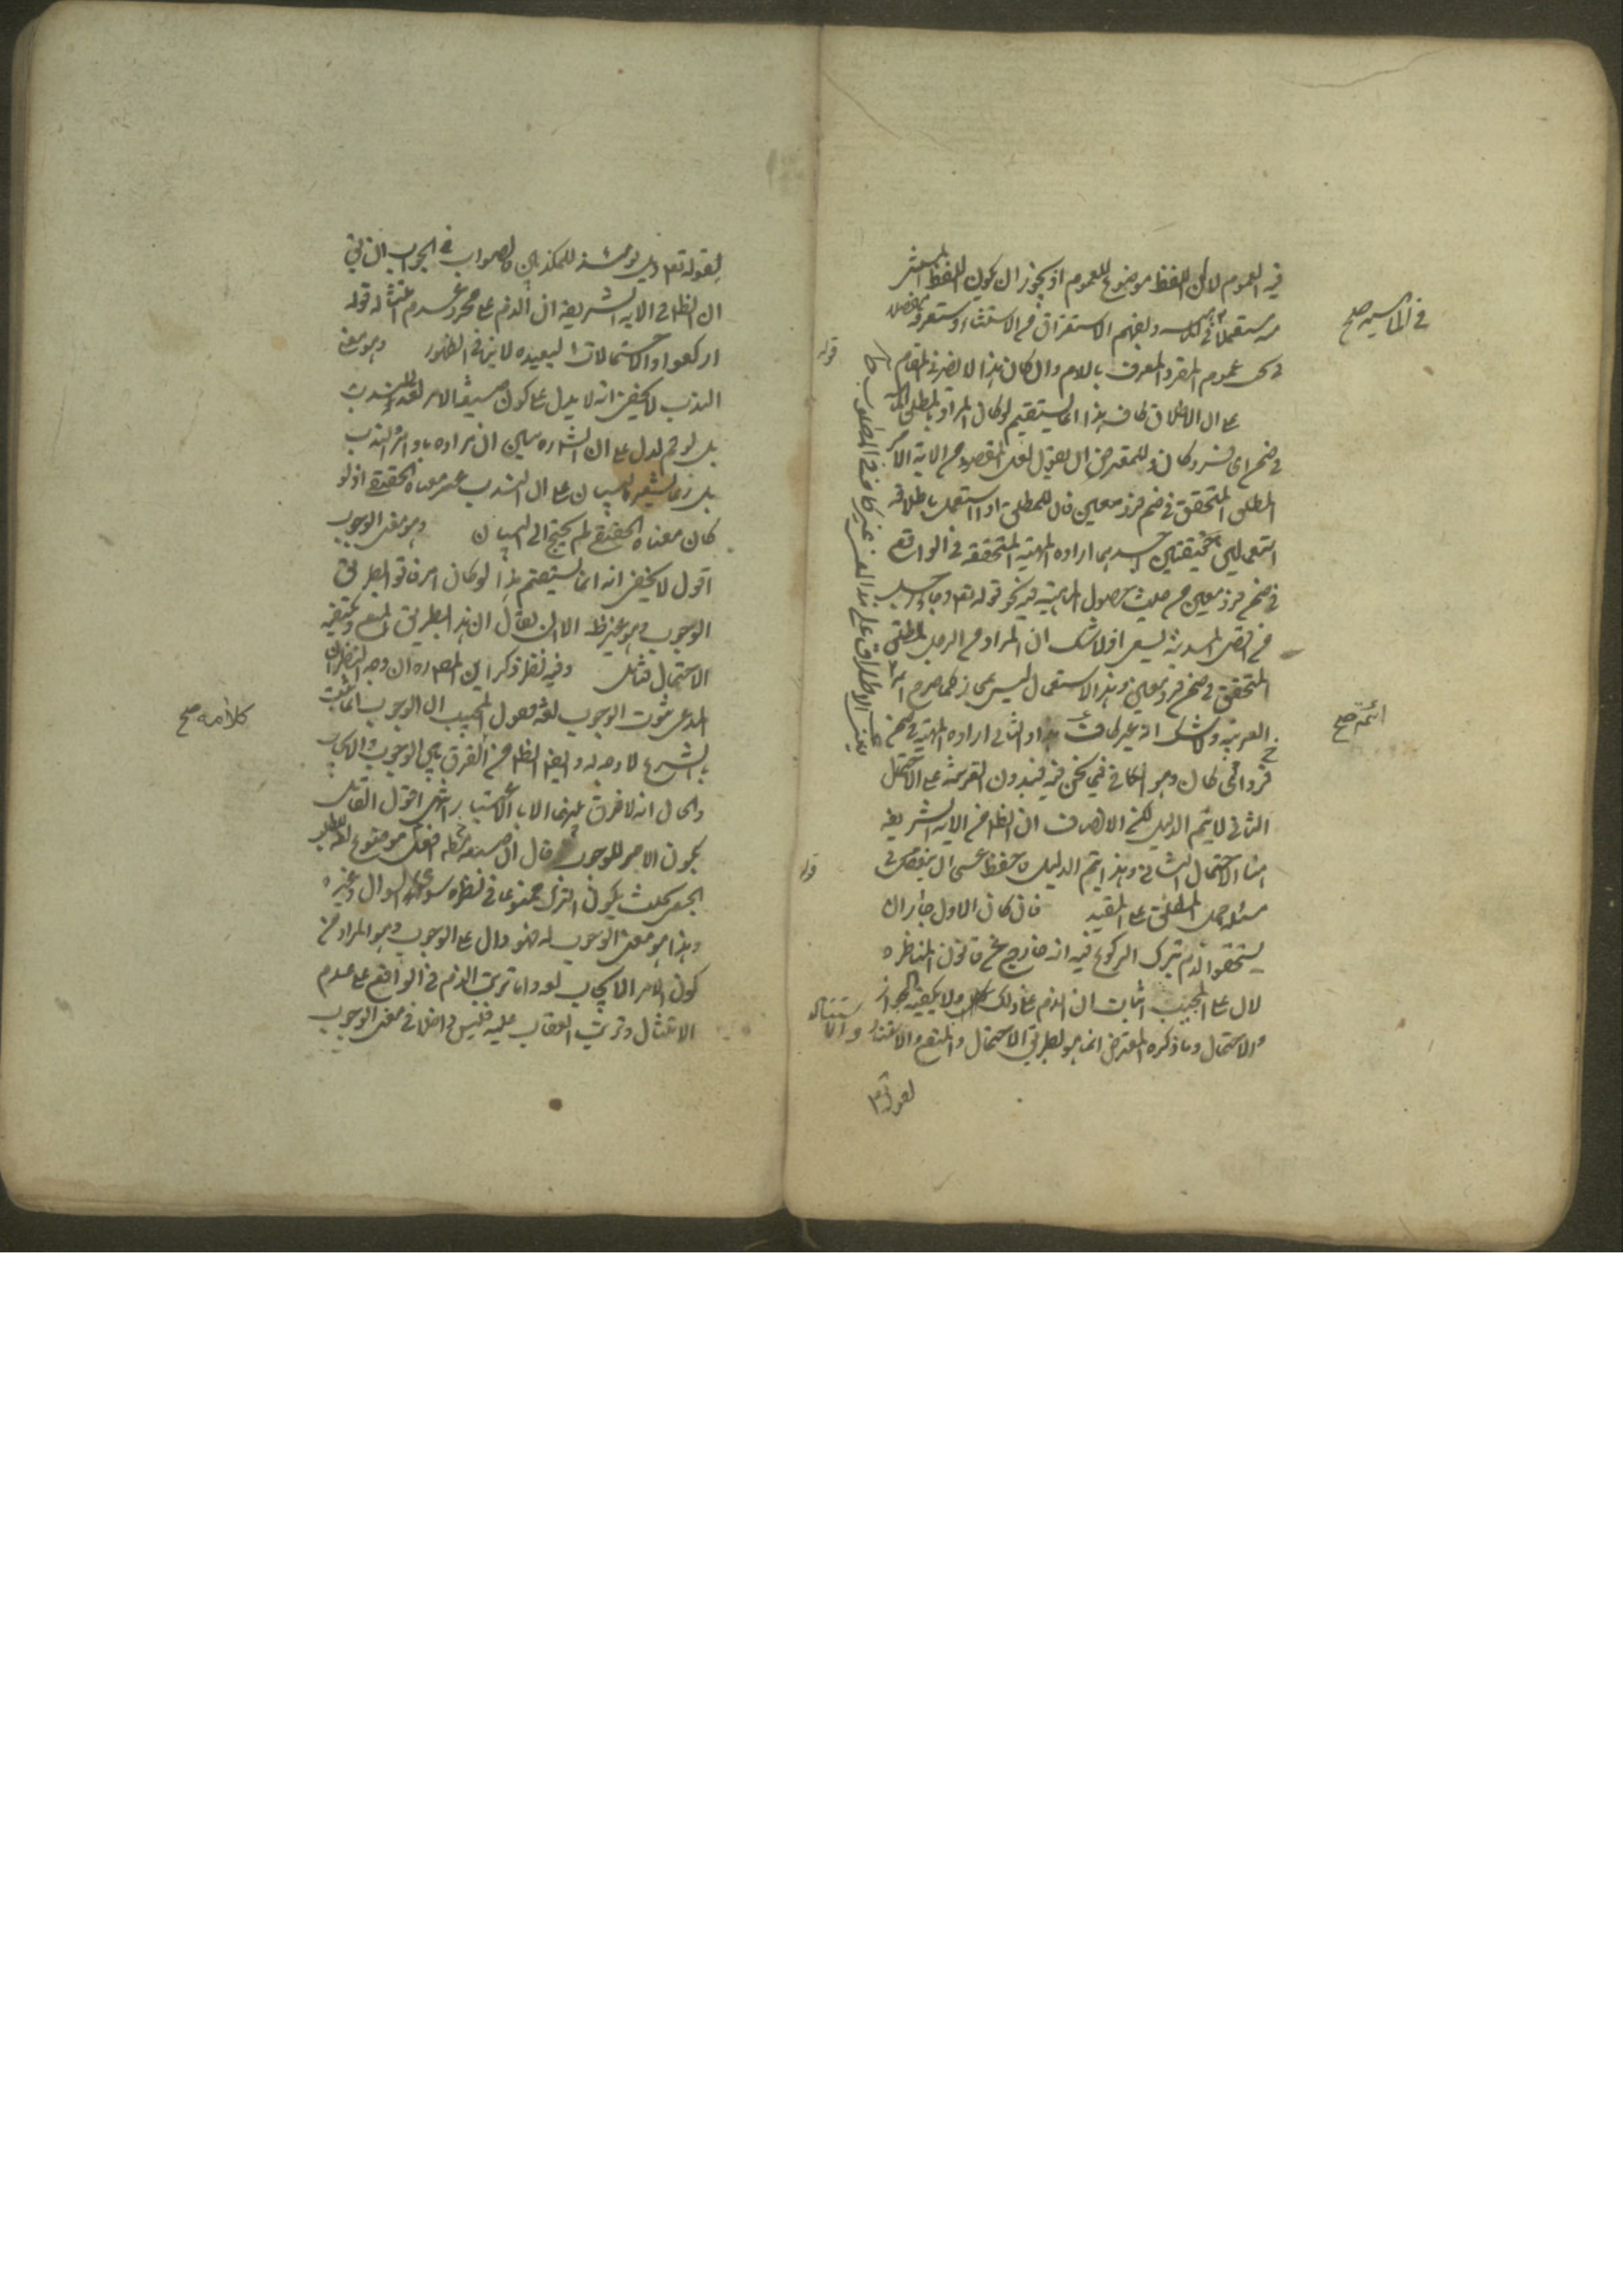 فيه العموم لا ان اللفظ موضوع للعموم اذ يجوز ان يكون اللفظ
مستعملا في وليفهم الاستغراق من الاستثناء وستعرفه مفصلا
في عموم المفرد المعرف باللام وان كان هذا لا يضر في المقام
على ان الاطلاق كاف هذا انما يستقيم لو كان المراد بالمطلق
في ضمن اي فرد كان وللمعترض ان يقول لعل المقصود من الاية الامر
المطلق المتحقق في ضمن فرد معين فان للمطلق اذا استعمل باطلاقه
استعمالين حقيقيين احدهما ارادة الماهية المتحققة في الواقع
في ضمن فرد معين من حيث حصول الماهية فيه نحو قوله تعه وجاء رجل
من اقصى المدينة يسعى اذ لا شك ان المراد من الرجل المطلق
المتحقق في ضمن فرد معين وهذا الاستعمال ليس بمجاز كما صرح به
العربية ولا شك انه غير كاف والثاني ارادة الماهية في ضمن
فرد اي كان وهو الكافي فيما نحن فيه فبدون القرينة على الاحتمال
الثاني لا يتم الدليل لكن الانصاف ان الظ من الاية الشريفة
هنا الاحتمال الثاني وبهذا يتم الدليل فاحفظ عسى ان ينفعك في
مسئلة حمل المطلق على المقيد فان كان الاول جاز ان
يستحقوا الذم بترك الركوع فيه انه خارج عن قانون المناظرة
لان على المجيب اثبات ان الذم على ذلك ولا يكفيه الجواز
والاحتمال وما ذكره المعترض انما هو بطريق الاحتمال والمنع
لقوله تعه
في الماهية صح
ائمة صح
قوله
قوله
لقوله تعه ويل يومئذ للمكذبين والصواب في الجواب
ان الظ من الاية الشريفة ان الذم على مجرد عدم امتثاله قوله
اركعوا والاحتمالات البعيدة لا ينافي الظهور وهو معنى
الندب لا يخفى انه لا يدل على كون صيغة الامر لغة للندب
بل لو تم لدل على ان الشارع بين ان مراده باوامره الندب
بل ربما يشعر بالبيان على ان الندب غير معناه الحقيقي اذ لو
كان معناه الحقيقي لم يحتج الى البيان وهو معنى الوجوب
اقول لا يخفى انه انما يستقيم هذا لو كان امرا فاتوا بطريق
الوجوب وهو غير ظ الا ان يقال ان هذا بطريق المنع ويكفيه
الاحتمال فتامل وفيه نظر ذكر ان وجه النظر ان
المدعى ثبوت الوجوب لغة فقول المجيب ان الوجوب انما يثبت
بالشرع لا وجه له وايضا الظ من الفرق بين الوجوب والايجاب
والحال انه لا فرق بينهما الا بالاعتبار انتهى اقول القائل
بكون الامر للوجوب قال ان صيغة افعل موضوعة لطلب
الفعل بحيث يكون الترك ممنوعا في نظره سواء السؤال وغيره
وهذا هو معنى الوجوب لغة فهو دال على الوجوب وهو المراد من
كون الامر للايجاب لغة واما ترتب الذم في الواقع على عدم
الامتثال وترتب العقاب عليه فليس داخلا في معنى الوجوب
كلامه صح